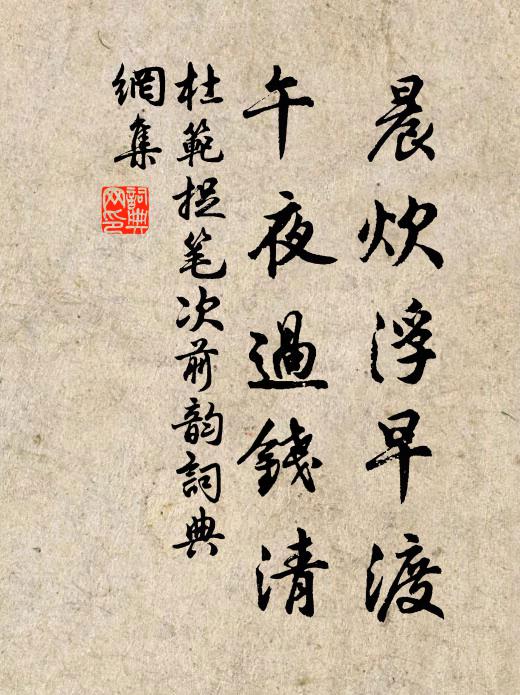 晨炊浮早渡
午夜過錢清
杜範捉笔次前韵詞典
網集
詞典網印